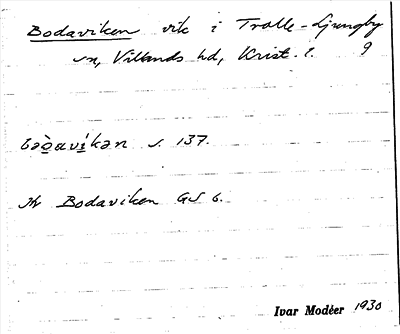 Bodaviken vik i Trolle-Ljungby
sn, Villands hd, Krist. l. 9
bòdavíkən s. 137.
Hr Bodaviken GS 6.
Ivar Modéer 1930